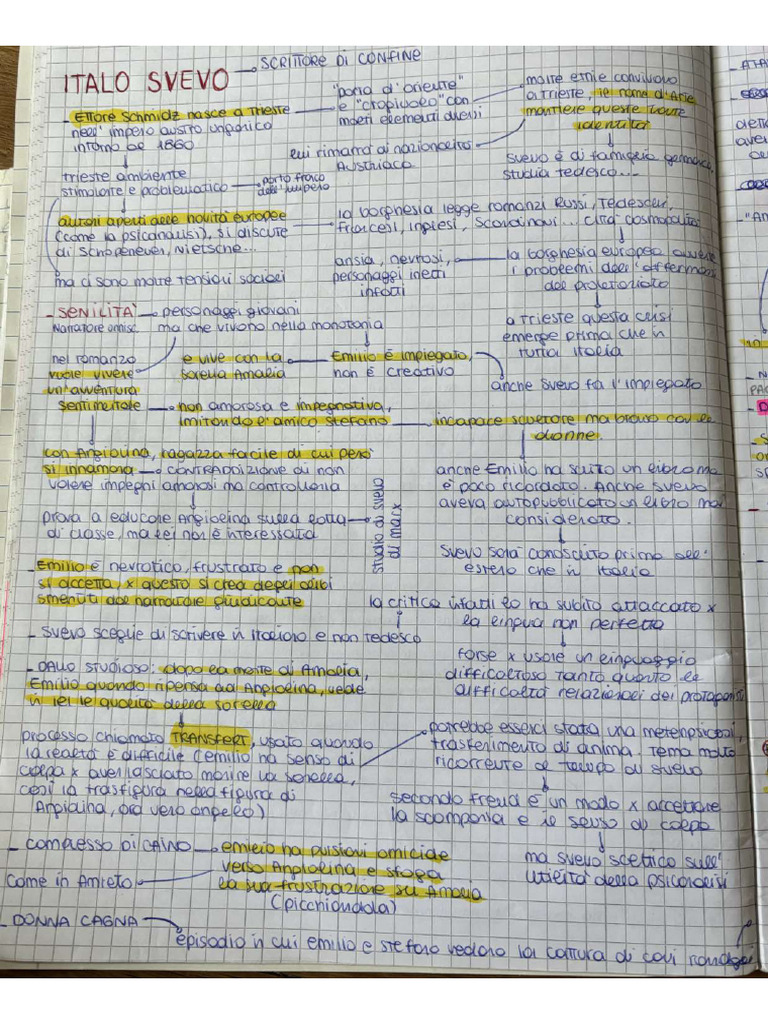 ITALO SVEVO → SCRITTORE DI CONFINE
Ettore Schmidz nasce a Trieste
nell'impero austro ungarico
intorno al 1860
"porta d'oriente"
e "crogiuolo" con
molti elementi diversi
molte etnie convivono
a Trieste, il nome d'Arte
mantiene queste
identità
lui rimarrà di nazionalità
Austriaca
svevo è di famiglia
studia tedesco...
trieste ambiente
stimolante e problematico
porto franco
dell'impero
autori aperti alle novità europee
(come la psicanalisi), si discute
di Schopeneuer, Nietsche...
la borghesia legge romanzi Russi, Tedeschi,
francesi, inglesi, Scandinavi... città cosmopolita
ma ci sono molte tensioni sociali
ansia, nevrosi,
personaggi inetti
infatti
la borghesia europea
i problemi dell'
del proletariato
a Trieste questa crisi
emerge prima che in
tutta Italia
- SENILITÀ → personaggi giovani
Narratore onnisc. ma che vivono nella monotonia
nel romanzo
vuole vivere
un'avventura
sentimentale
e vive con la
sorella Amalia
Emilio è impiegato,
non è creativo
anche Svevo fa l'impiegato
non amorosa e impegnativa,
imitando l'amico stefano
incapace scultore ma bravo con le
donne.
con Angiolina, ragazza facile di cui però
si innamora → CONTRADDIZIONE di non
volere impegni amorosi ma controllarla
anche Emilio ha scritto un libro ma
è poco ricordato. Anche svevo
aveva autopubblicato un libro mai
considerato.
prova a educare Angiolina sulla lotta
di classe, ma lei non è interessata
studio di svevo
di marx
svevo sarà conosciuto prima all'
estero che in Italia
- Emilio è nevrotico, frustrato e non
si accetta, x questo si crea degli alibi
smentiti dal narratore giudicante
la critica infatti lo ha subito attaccato x
la lingua non perfetta
- svevo sceglie di scrivere in italiano e non tedesco
forse x usare un linguaggio
difficoltoso tanto quanto le
difficoltà relazionali dei
- DALLO STUDIOSO: dopo la morte di Amalia,
Emilio quando ripensa ad Angiolina, vede
in lei le qualità della sorella
processo chiamato TRANSFERT, usato quando
la realtà è difficile (emilio ha senso di
colpa x aver lasciato morire la sorella,
così la trasfigura nella figura di
Angiolina, ora vero angelo)
potrebbe esserci stata una metempsicosi,
trasferimento di anima. Tema molto
ricorrente al tempo di svevo
secondo Freud è un modo x accettare
la scomparsa e il senso di colpa
ma svevo scettico sull'
utilità della psicanalisi
- COMPLESSO DI CAINO → emilio ha pulsioni omicide
verso Angiolina e sfoga
la sua frustrazione su Amalia
(picchiandola)
come in Amleto
- DONNA CAGNA
episodio in cui emilio e stefano vedono la cattura di cani randagi